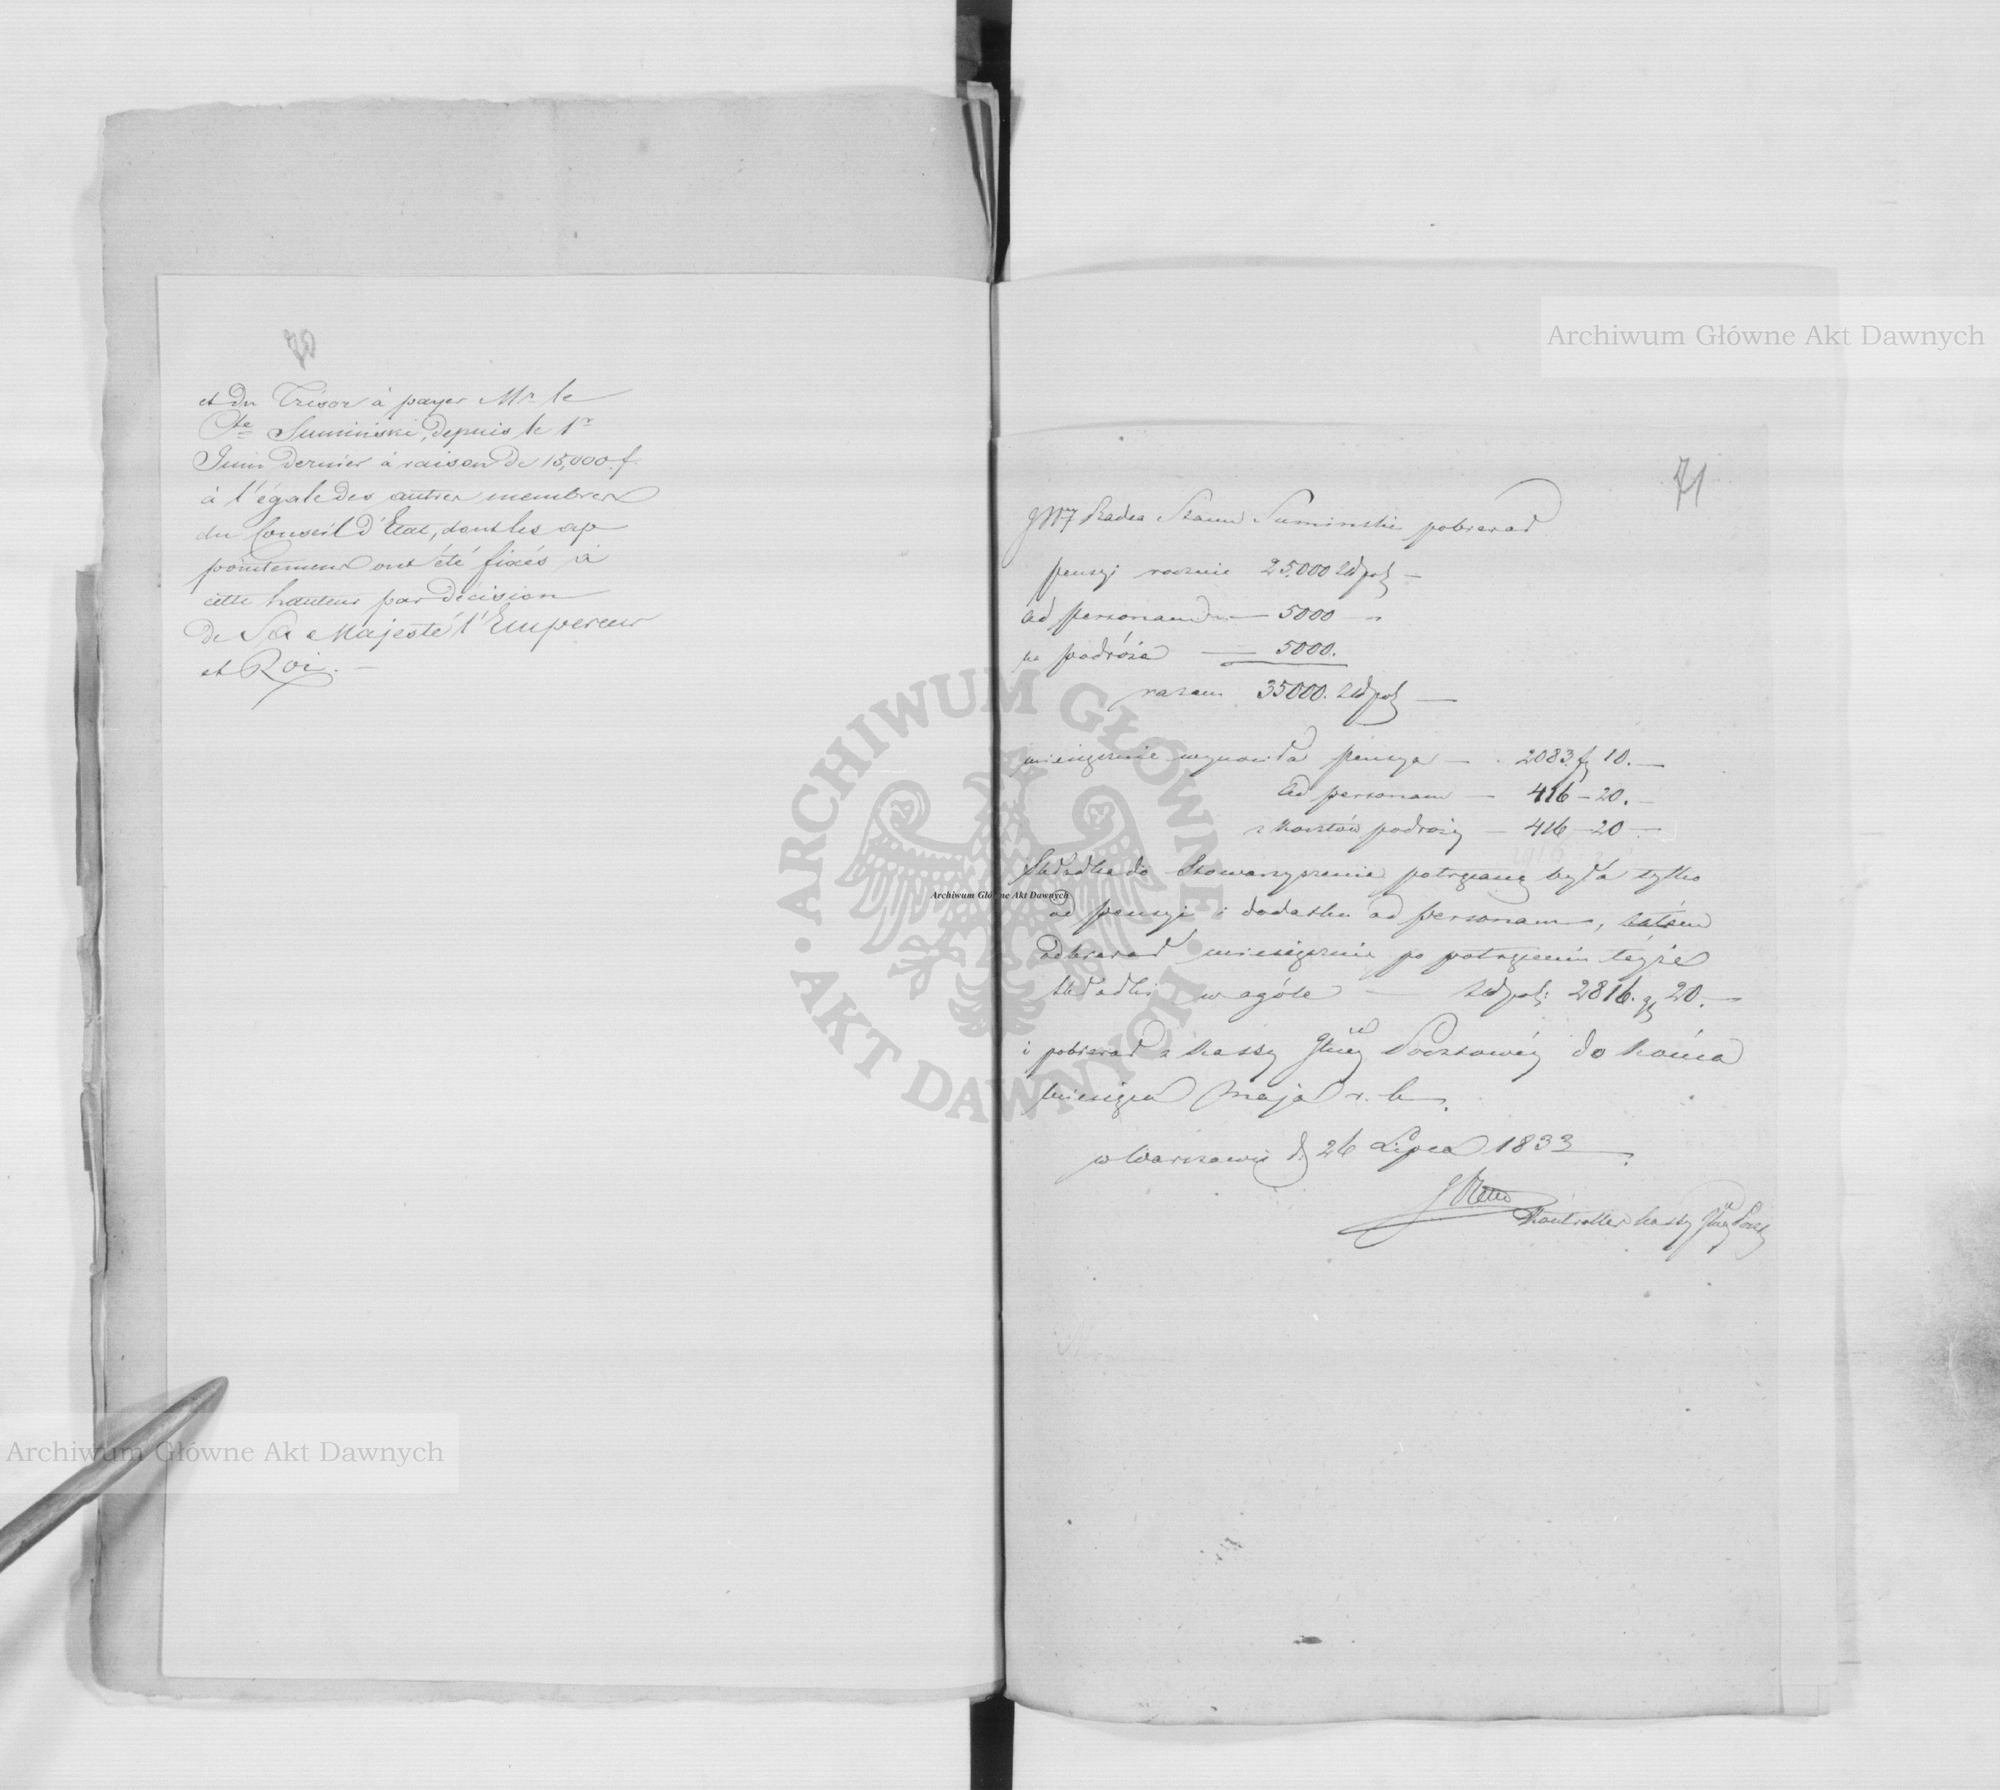 70
et du Trésor à payer Mr le
Cte Sumiński, depuis le 1r
Juin dernier à raison de 15,000 f.
à l'égale des autres membres
du Conseil d'État, dont les ap
pointemens ont été fixés à
cette hauteur par décision
de Sa Majesté l'Empereur
et Roi. —
71
JWny Radca Stanu Suminski pobierał
pensyi rocznie 25.000 Złpol —
ad personam — 5000 —
na podróże — 5000.
razem 35000. Złpol —
miesięcznie wynosiła pensya — 2083. gr 10. —
ad personam — 416 — 20. —
z kosztów podróży — 416 — 20 —
Składka do Stowarzyszenia potrącaną była tylko
od pensyi i dodatku ad personam, zatem
odbierał miesięcznie po potrąceniu téyże
składki w ogóle — Złpol: 2816. gr 20. —
i pobierał z kassy Głney Pocztowéy do końca
miesiąca Maja r. b.
w Warszawie d. 26 Lipca 1833
Kontroller kassy Głney Poczt
Archiwum Główne Akt Dawnych
Archiwum Główne Akt Dawnych
Archiwum Główne Akt Dawnych
ARCHIWUM GŁÓWNE AKT DAWNYCH